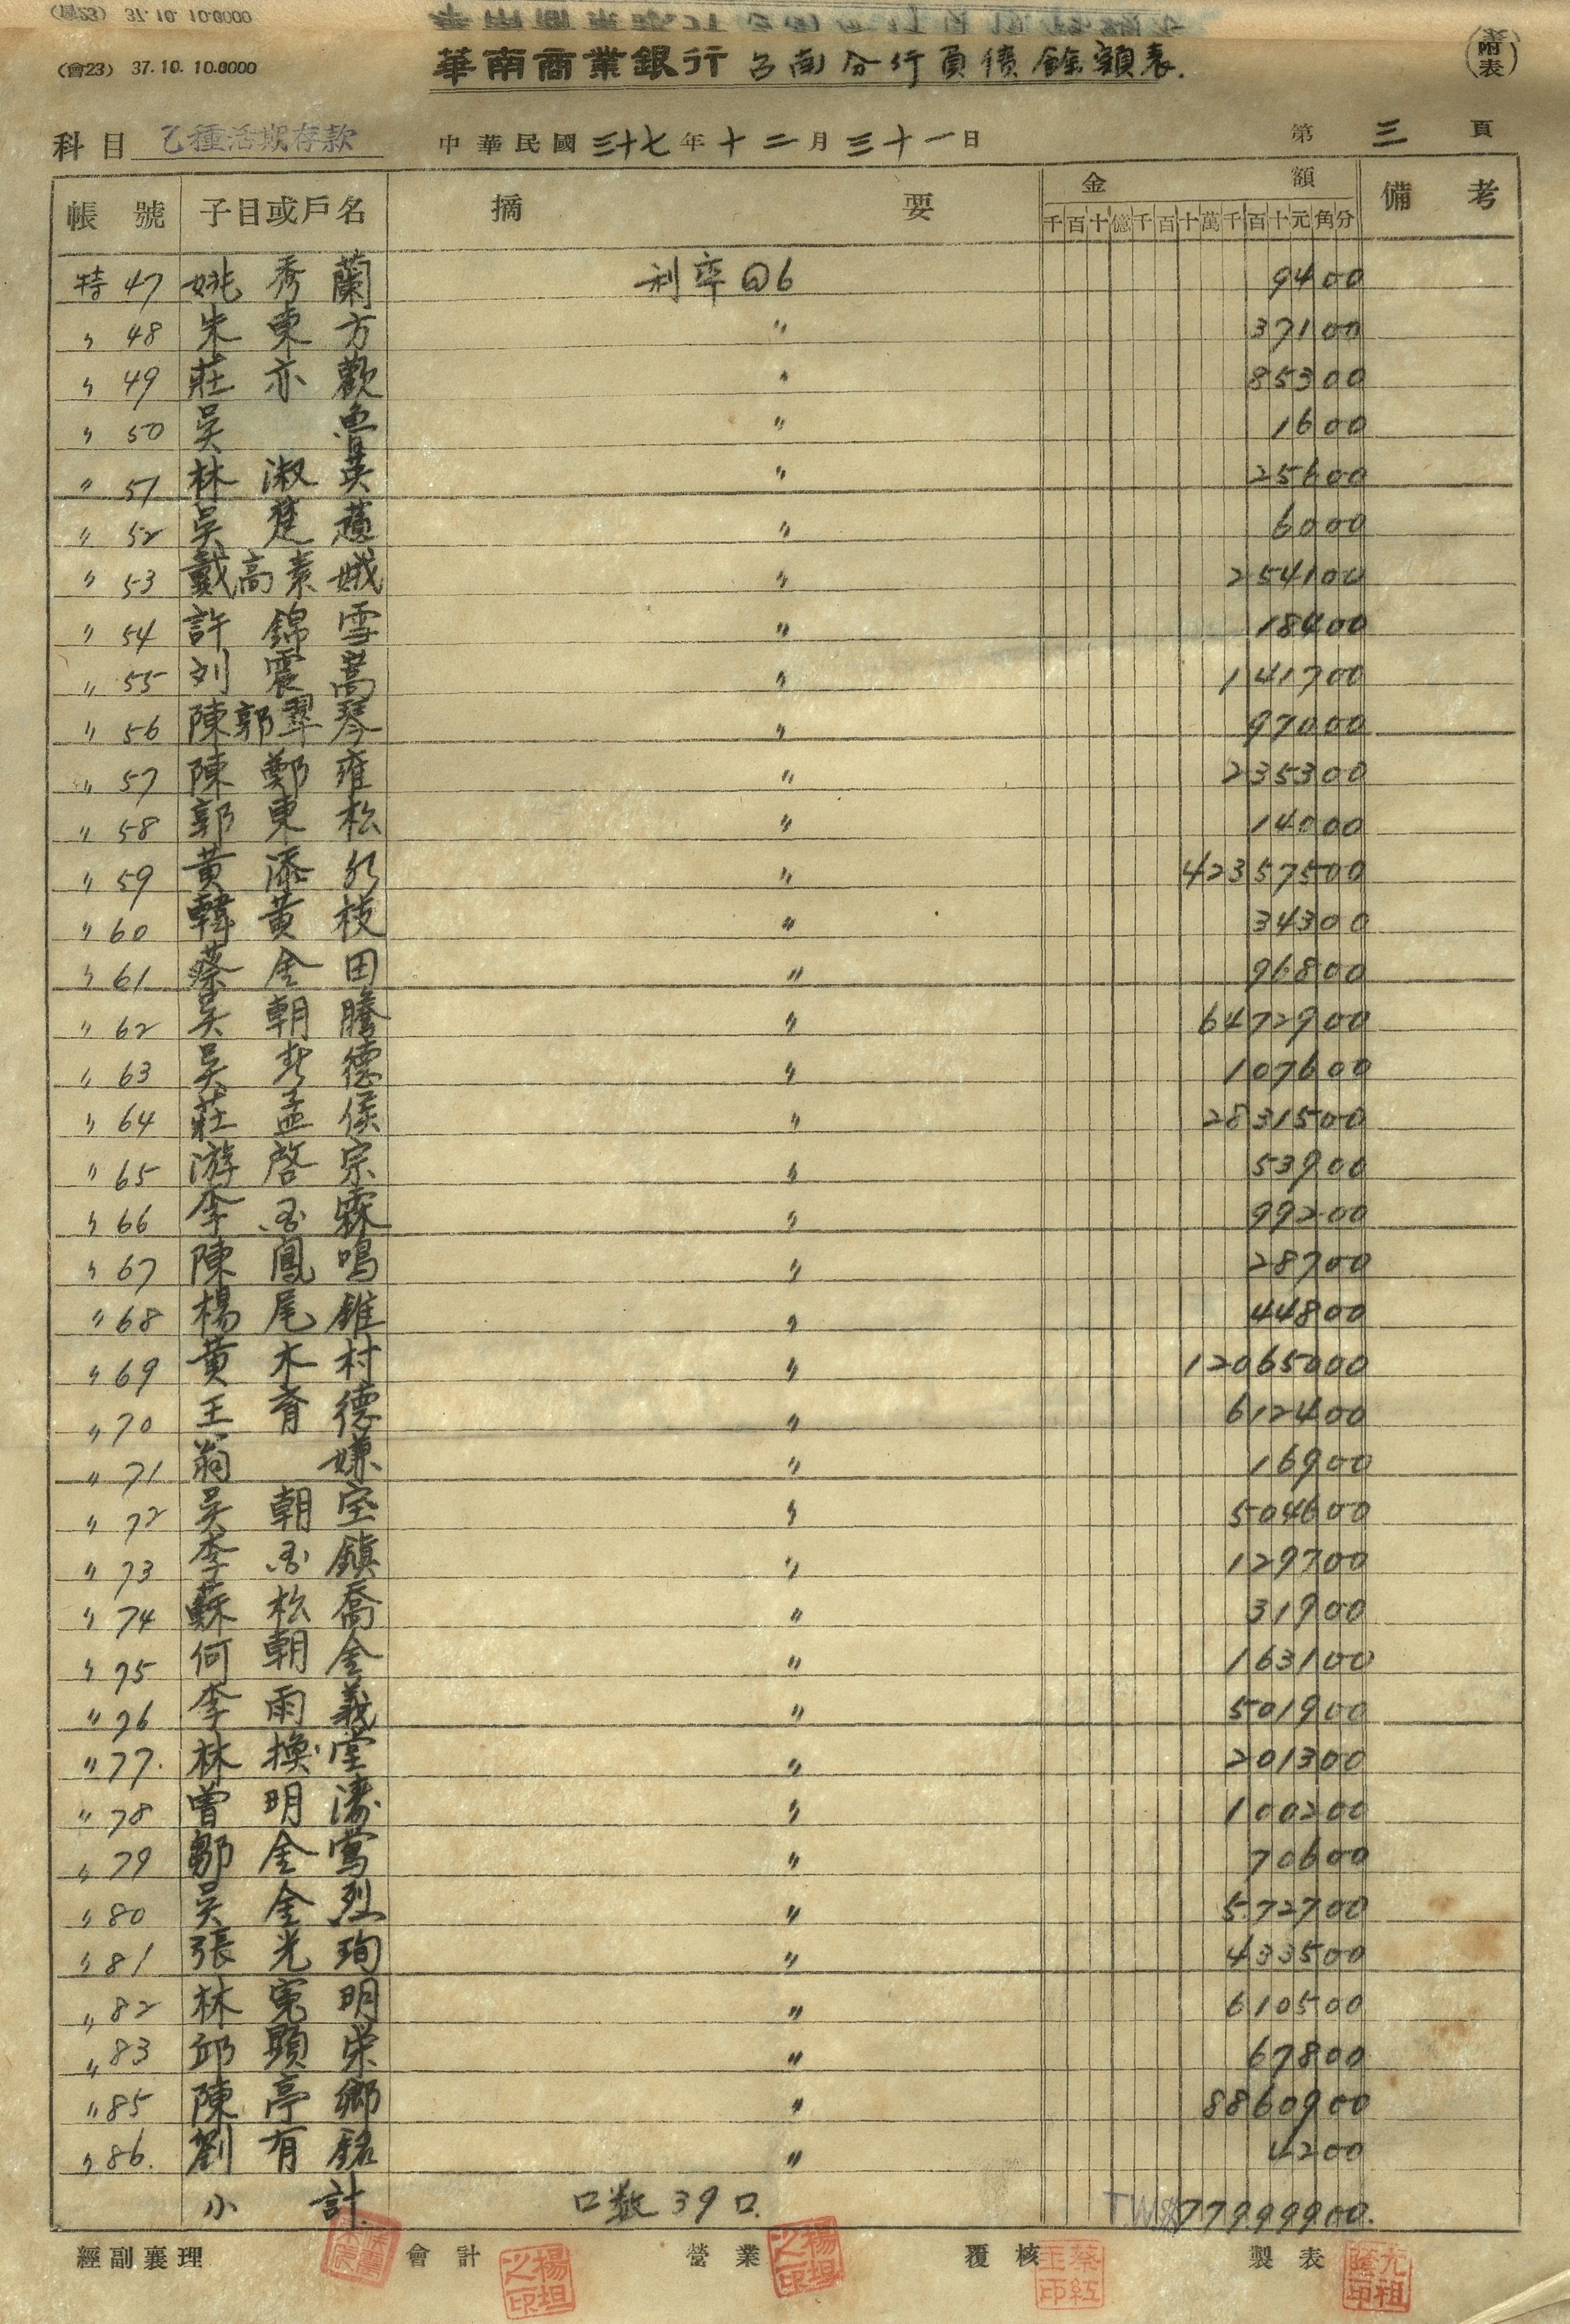 (會23) 37.10.10.0000
華南商業銀行 台南分行負債餘額表.
(附表)
科目 乙種活期存款 中華民國三十七年十二月三十一日 第三頁
帳號 子目或戶名 摘要 金額 備考
千百十億千百十萬千百十元角分
特 47 姚秀蘭 利率@6 9400
〃 48 朱東方 〃 37100
〃 49 莊亦歡 〃 85300
〃 50 吳魯 〃 1600
〃 51 林淑英 〃 25600
〃 52 吳楚蓮 〃 6000
〃 53 戴高素娥 〃 254100
〃 54 許錦雪 〃 18400
〃 55 刘震嵩 〃 141700
〃 56 陳郭翠琴 〃 97000
〃 57 陳鄭雍 〃 235300
〃 58 郭東松 〃 14000
〃 59 黃添 〃 42357500
〃 60 韓黃枝 〃 34300
〃 61 蔡金田 〃 96800
〃 62 吳朝騰 〃 6472900
〃 63 吳德 〃 107600
〃 64 莊孟侯 〃 2831500
〃 65 游啓宗 〃 53900
〃 66 李霖 〃 99200
〃 67 陳鳳鳴 〃 28700
〃 68 楊尾錐 〃 44800
〃 69 黃木村 〃 12065000
〃 70 王育德 〃 612400
〃 71 翁嫌 〃 16900
〃 72 吳朝宝 〃 504600
〃 73 李鎮 〃 129700
〃 74 蘇松喬 〃 31900
〃 75 何朝金 〃 163100
〃 76 李雨義 〃 501900
〃 77. 林換堂 〃 201300
〃 78 曾明濤 〃 100200
〃 79 鄒金鶯 〃 70600
〃 80 吳金烈 〃 572700
〃 81 張光珣 〃 433500
〃 82 林寃明 〃 610500
〃 83 邱顯栄 〃 67800
〃 85 陳亭鄉 〃 8860900
〃 86. 劉有銘 〃 4200
小計 口数39口. 77999900.
經副襄理 會計 營業 覆核 製表
楊坦之印 楊坦之印